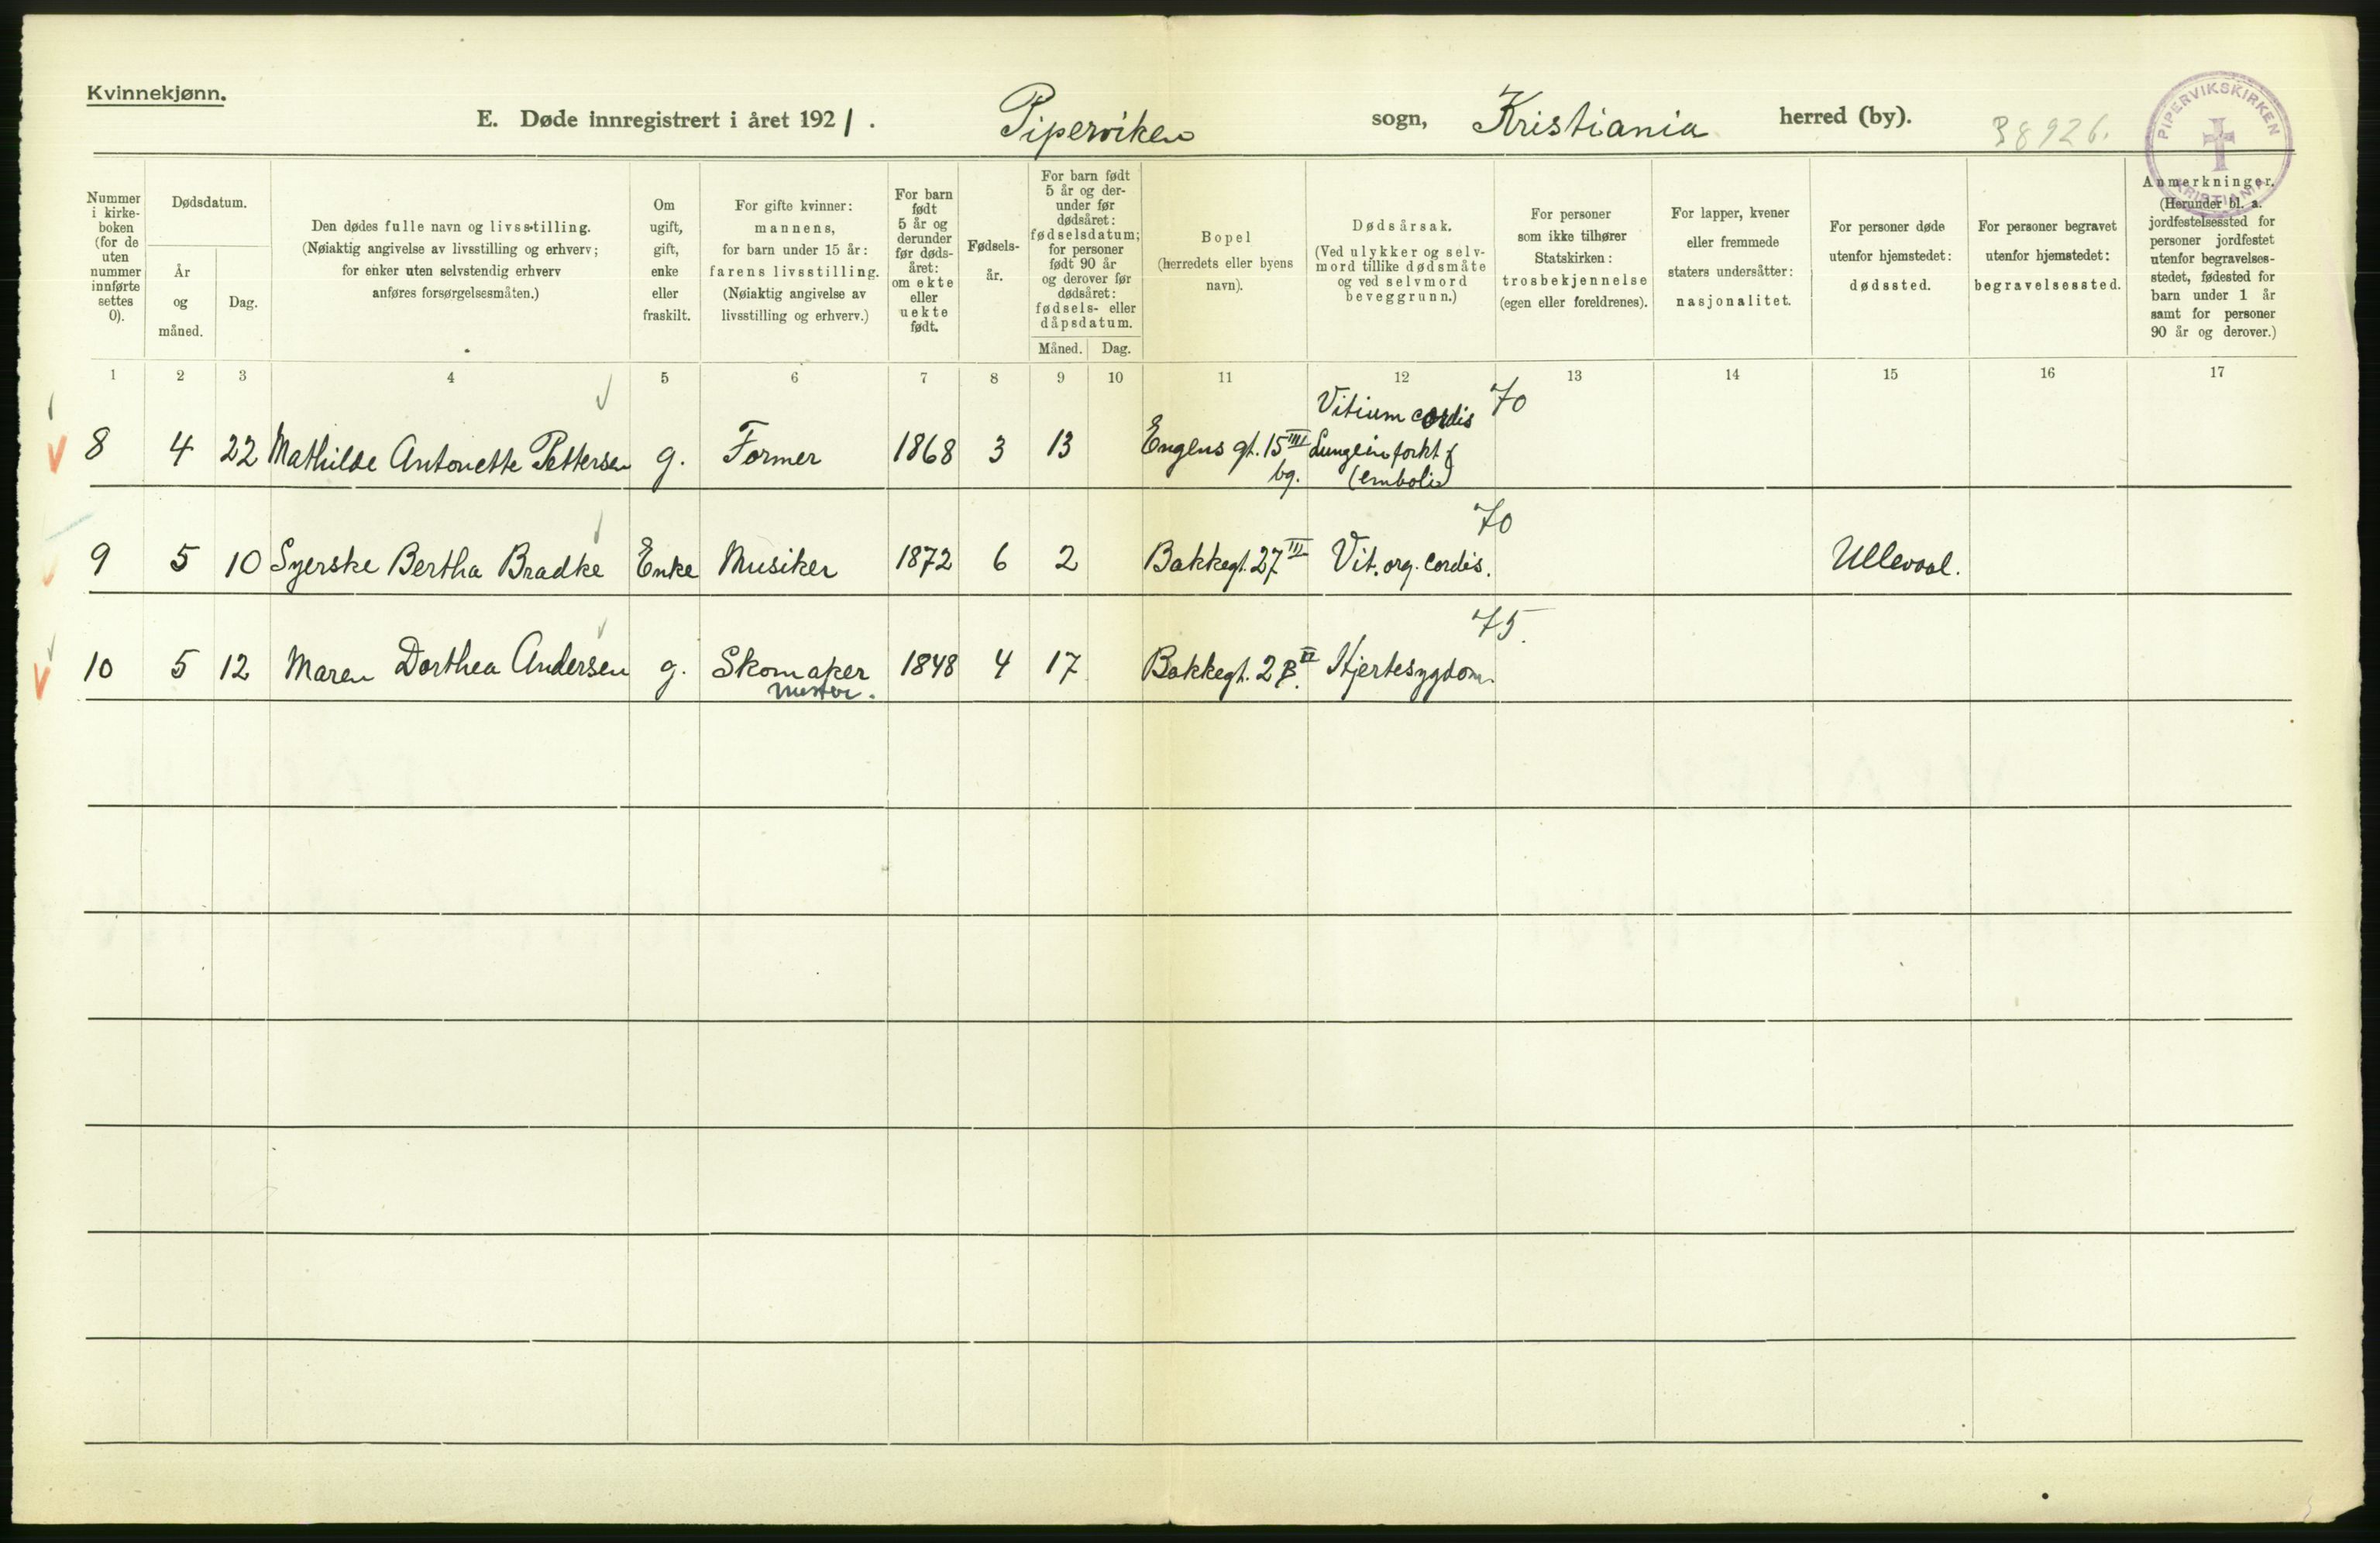 Kvinnekjønn.
E. Døde innregistrert i året 1921. Piperviken sogn, Kristiania herred (by). 38926.
PIPERVIKSKIRKEN
KRISTIANIA
Nummer
i kirke-
boken
(for de
uten
nummer
innførte
settes
0).
Dødsdatum.
År
og
måned.
Dag.
Den dødes fulle navn og livsstilling.
(Nøiaktig angivelse av livsstilling og erhverv;
for enker uten selvstendig erhverv
anføres forsørgelsesmåten.)
Om
ugift,
gift,
enke
eller
fraskilt.
For gifte kvinner:
mannens,
for barn under 15 år:
farens livsstilling.
(Nøiaktig angivelse av
livsstilling og erhverv.)
For barn
født
5 år og
derunder
før døds-
året:
om ekte
eller
uekte
født.
Fødsels-
år.
For barn født
5 år og der-
under før
dødsåret:
fødselsdatum;
for personer
født 90 år
og derover før
dødsåret:
fødsels- eller
dåpsdatum.
Måned. Dag.
Bopel
(herredets eller byens
navn).
Dødsårsak.
(Ved ulykker og selv-
mord tillike dødsmåte
og ved selvmord
beveggrunn.)
For personer
som ikke tilhører
Statskirken:
trosbekjennelse
(egen eller foreldrenes).
For lapper, kvener
eller fremmede
staters undersåtter:
nasjonalitet.
For personer døde
utenfor hjemstedet:
dødssted.
For personer begravet
utenfor hjemstedet:
begravelsessted.
Anmerkninger.
(Herunder bl. a.
jordfestelsessted for
personer jordfestet
utenfor begravelses-
stedet, fødested for
barn under 1 år
samt for personer
90 år og derover.)
1 2 3 4 5 6 7 8 9 10 11 12 13 14 15 16 17
8 4 22 Mathilde Antonette Pettersen g. Former 1868 3 13 Engens gt. 15 III
bg.
Vitium cordis 70
Lungeinfarkt
(emboli)
9 5 10 Syerske Bertha Bradke Enke Musiker 1872 6 2 Bakkegt. 27 III Vit. org. cordis. 70 Ullevaal.
10 5 12 Maren Dorthea Andersen g. Skomaker
mester.
1848 4 17 Bakkegt. 2 B. II Hjertesygdom. 75.